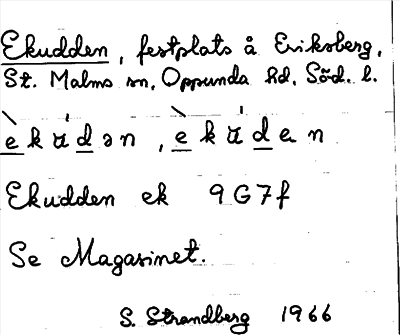 Ekudden, festplats å Eriksberg,
St. Malms sn, Oppunda hd, Söd. l.
èkʉ́dən, èkʉ́dən
Ekudden ek 9G7f
Se Magasinet.
S. Strandberg 1966